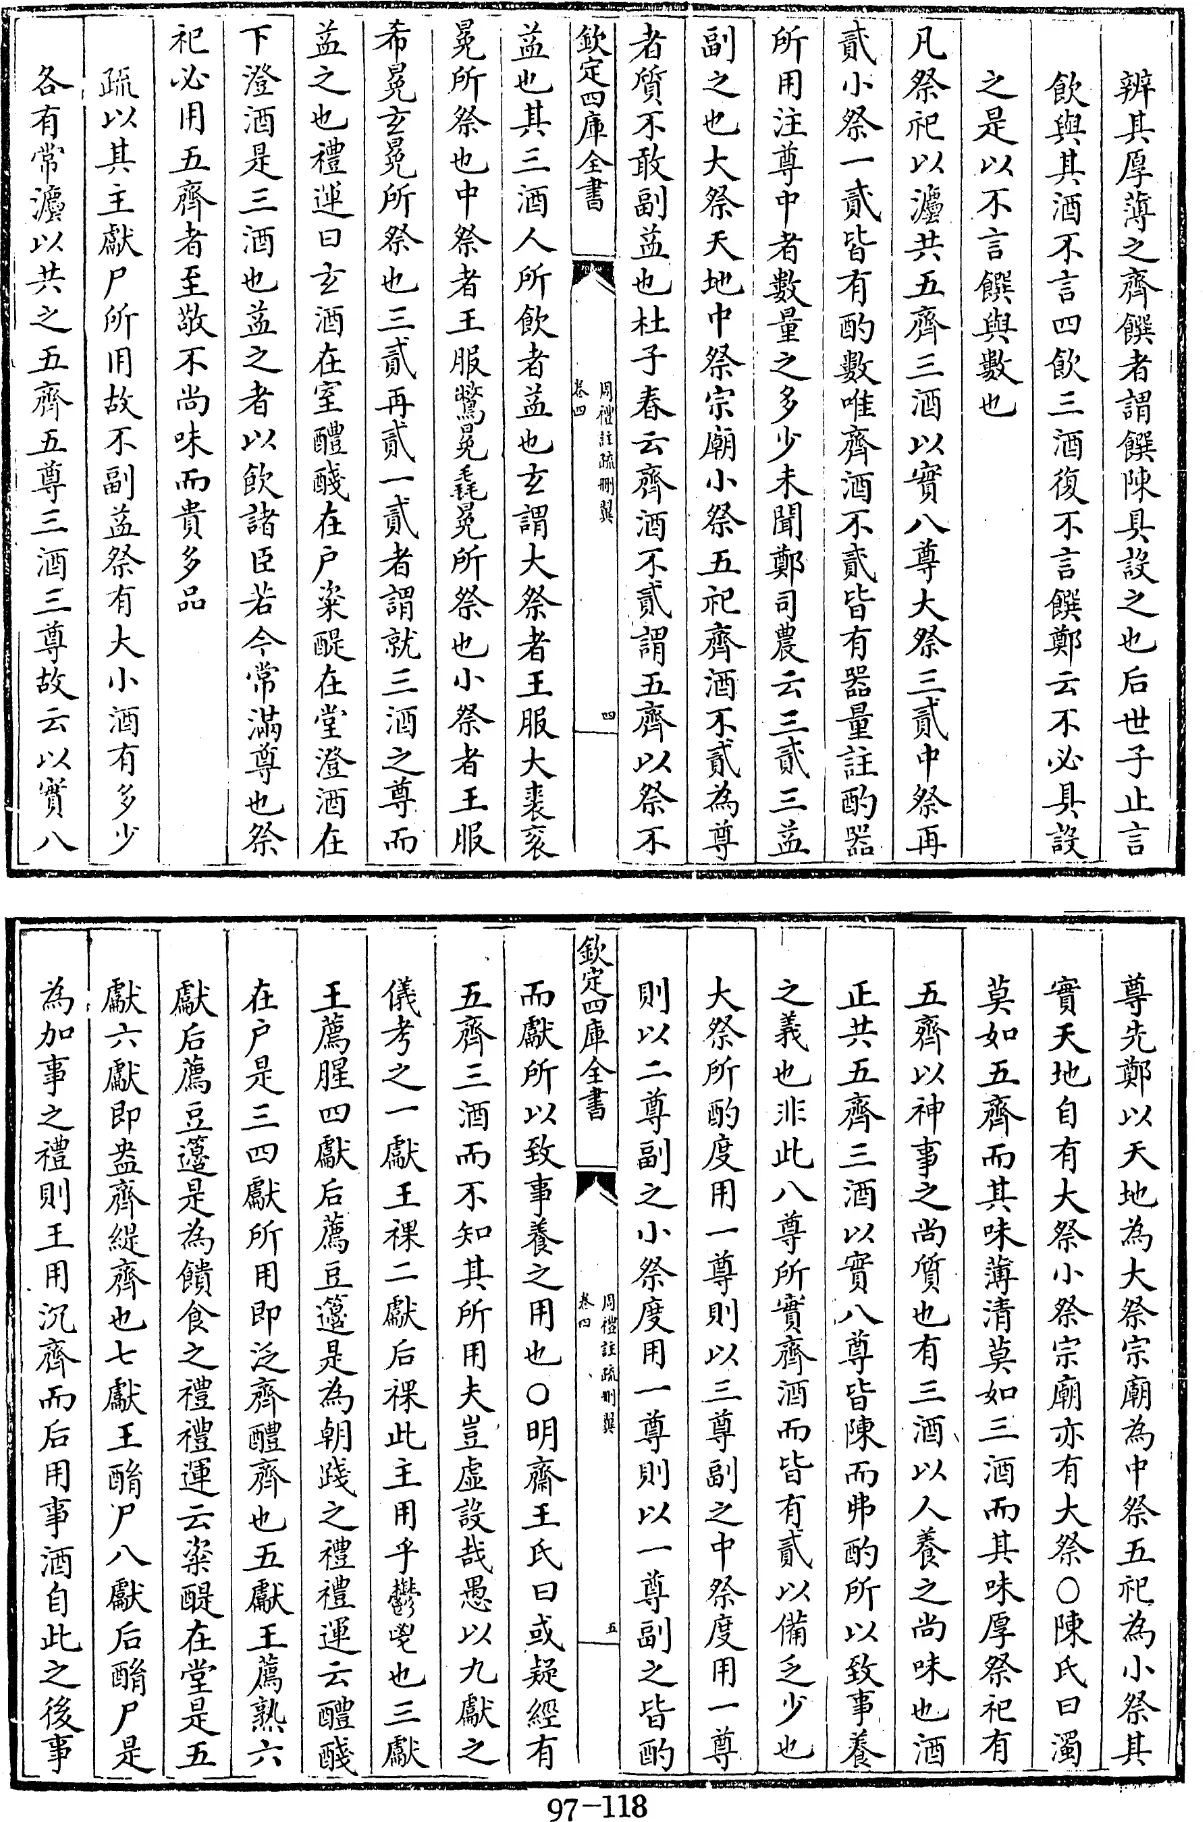 辨其厚薄之齊饌者謂饌陳具設之也后世子止言
飲與其酒不言四飲三酒復不言饌鄭云不必具設
之是以不言饌與數也
凡祭祀以灋共五齊三酒以實八尊大祭三貳中祭再
貳小祭一貳皆有酌數唯齊酒不貳皆有器量註酌器
所用注尊中者數量之多少未聞鄭司農云三貳三益
副之也大祭天地中祭宗廟小祭五祀齊酒不貳為尊
者質不敢副益也杜子春云齊酒不貳謂五齊以祭不
欽定四庫全書
周禮註疏刪翼
卷四
四
益也其三酒人所飲者益也玄謂大祭者王服大裘衮
冕所祭也中祭者王服鷩冕毳冕所祭也小祭者王服
希冕玄冕所祭也三貳再貳一貳者謂就三酒之尊而
益之也禮運曰玄酒在室醴醆在户粢醍在堂澄酒在
下澄酒是三酒也益之者以飲諸臣若今常滿尊也祭
祀必用五齊者至敬不尚味而貴多品
疏以其主獻尸所用故不副益祭有大小酒有多少
各有常灋以共之五齊五尊三酒三尊故云以實八
尊先鄭以天地為大祭宗廟為中祭五祀為小祭其
實天地自有大祭小祭宗廟亦有大祭○陳氏曰濁
莫如五齊而其味薄清莫如三酒而其味厚祭祀有
五齊以神事之尚質也有三酒以人養之尚味也酒
正共五齊三酒以實八尊皆陳而弗酌所以致事養
之義也非此八尊所實齊酒而皆有貳以備乏少也
大祭所酌度用一尊則以三尊副之中祭度用一尊
則以二尊副之小祭度用一尊則以一尊副之皆酌
欽定四庫全書
周禮註疏刪翼
卷四
五
而獻所以致事養之用也○明齋王氏曰或疑經有
五齊三酒而不知其所用夫豈虛設哉愚以九獻之
儀考之一獻王祼二獻后祼此主用乎鬱鬯也三獻
王薦腥四獻后薦豆籩是為朝踐之禮禮運云醴醆
在户是三四獻所用即泛齊醴齊也五獻王薦熟六
獻后薦豆籩是為饋食之禮禮運云粢醍在堂是五
獻六獻即盎齊緹齊也七獻王酳尸八獻后酳尸是
為加事之禮則王用沉齊而后用事酒自此之後事
97-118